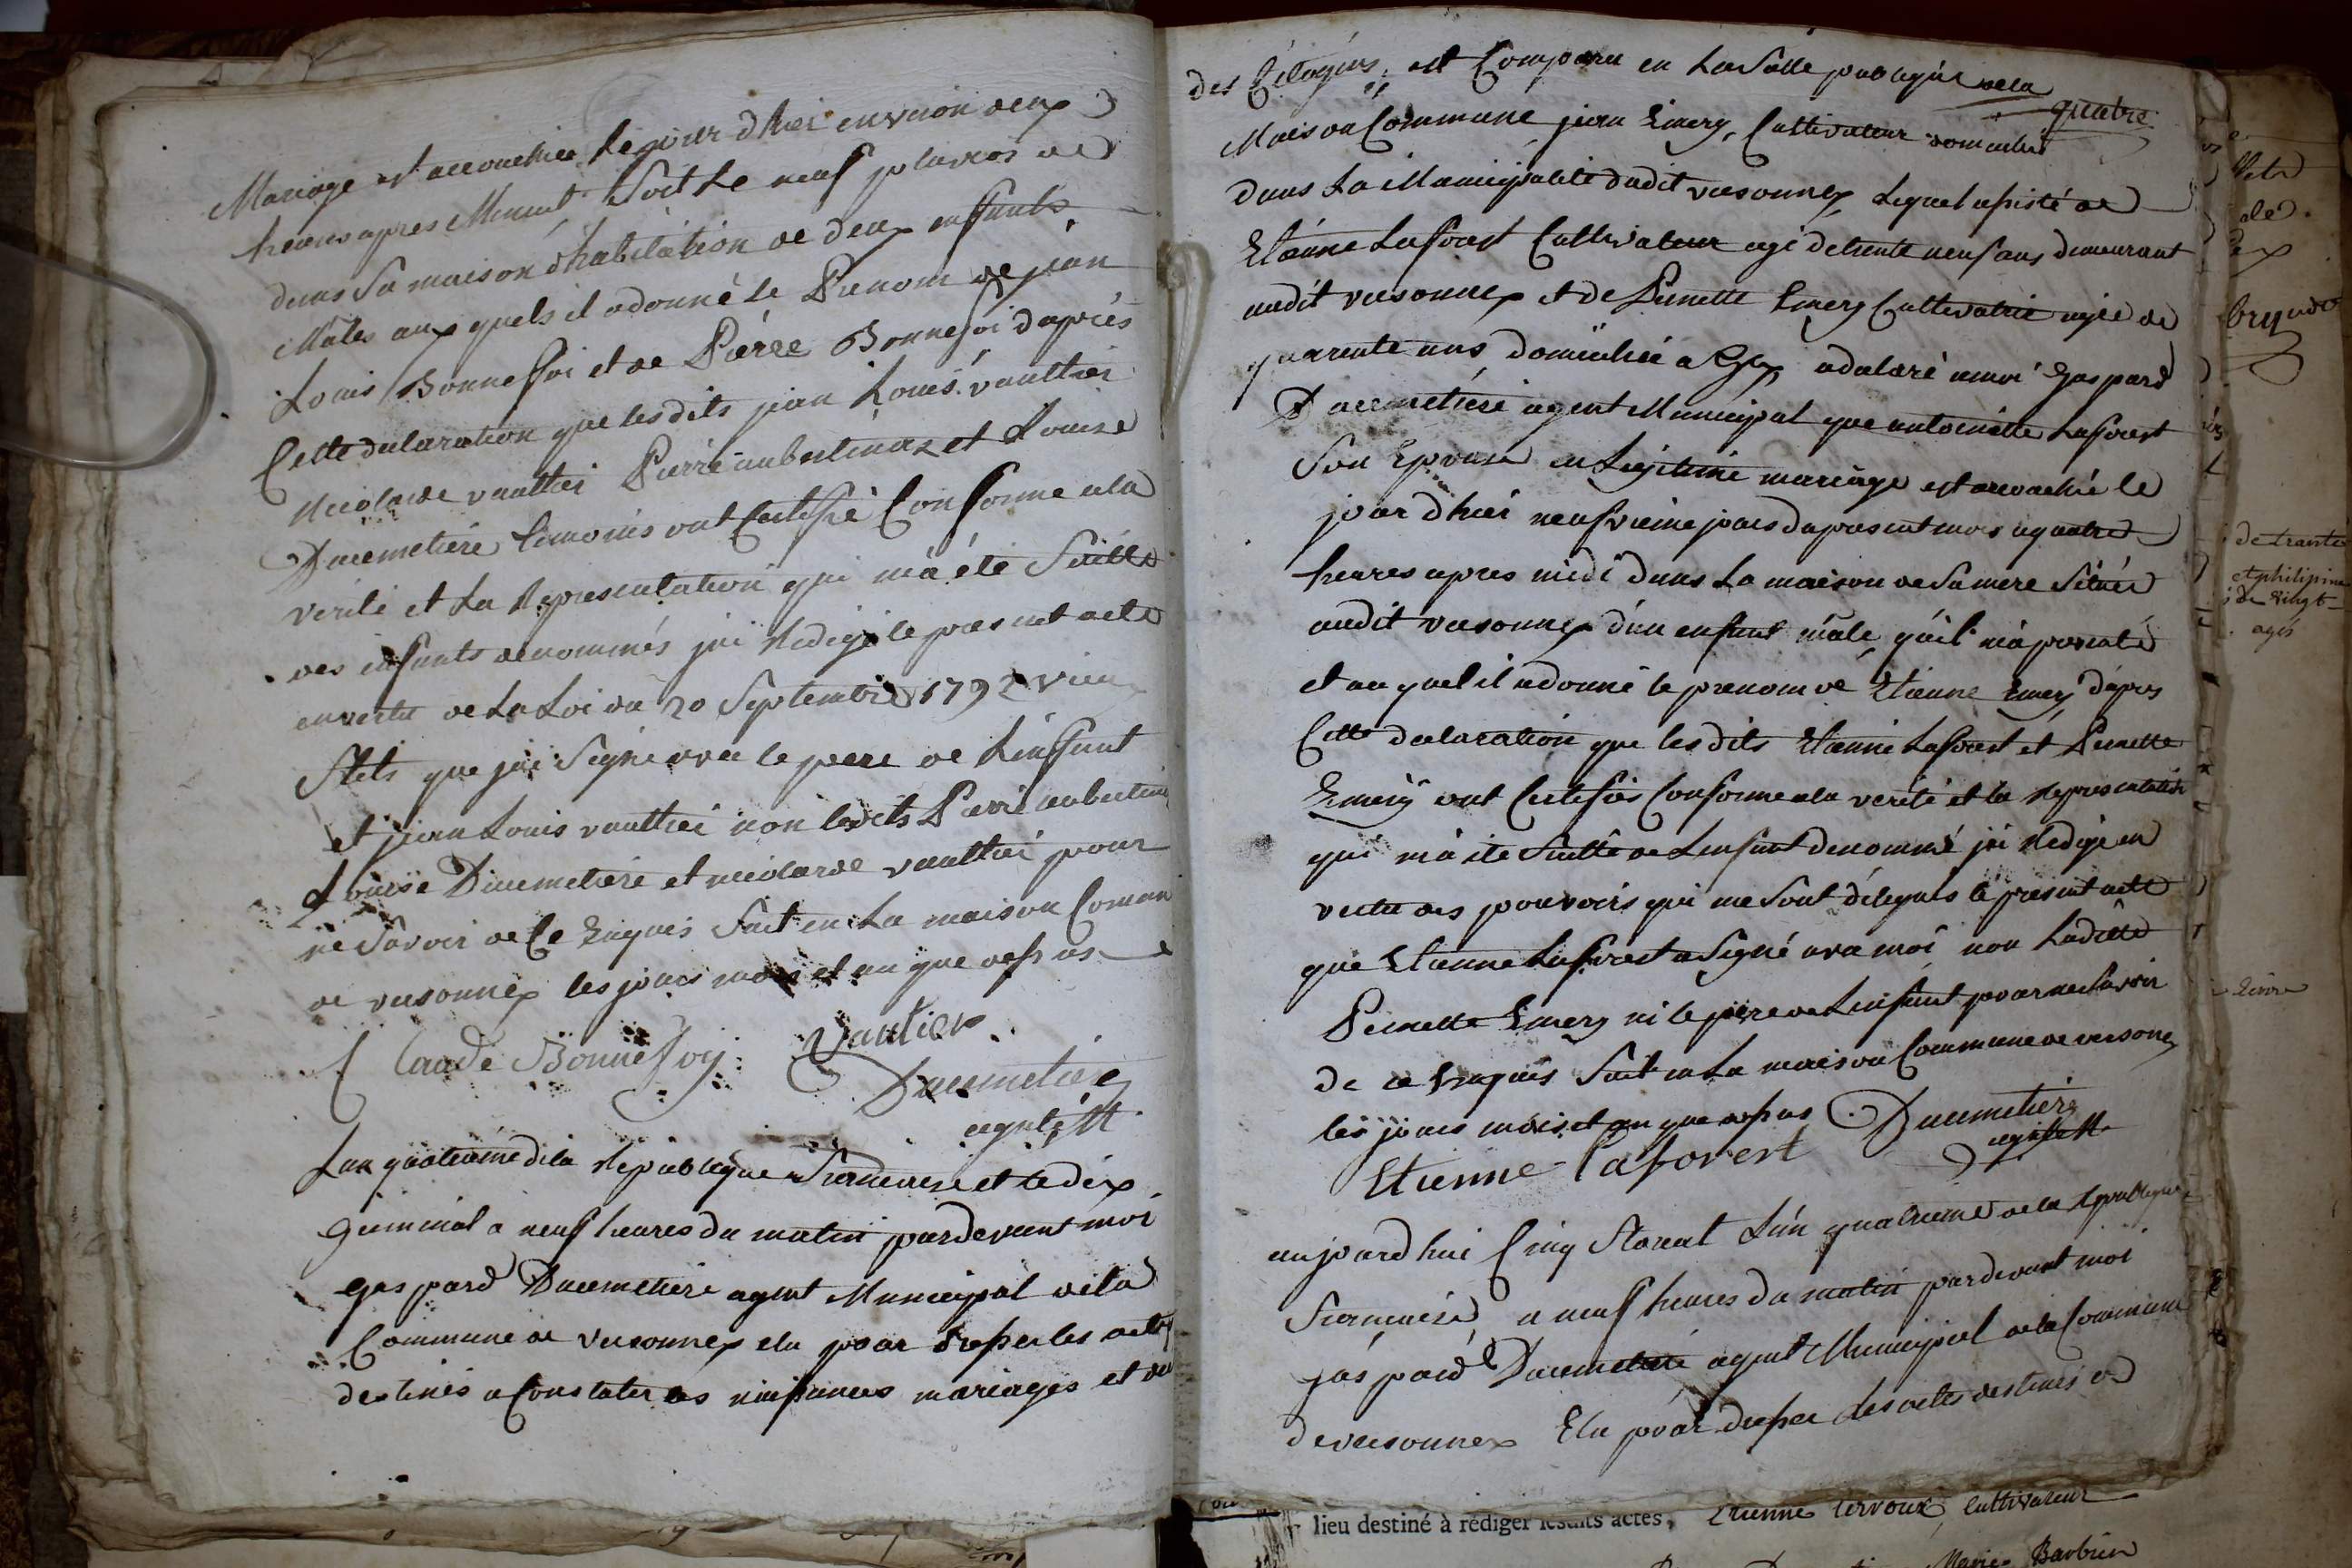 Mariage est accouchée le jour dhier environ deux
heures apres Minuit Soit Le neuf pluvios de
dans Sa maison dhabitation de deux enfants
Mâles aux quels il a donné le Prenom de jean
Louis Bonneffoi et de Pierre Bonnefoi daprès
Cette declaration que lesdits jean Louis vaultier
Nicolarde vaultier Pierre aubertinaz et Louise
Ducimetiére temoins ont Certifié Conforme a la
verité et La Representation qui m'a été faitte
des enfants denommés jai Redigé le present acte
en vertu de La Loi du 20 Septembre 1792 vieux
Stile que jai Signé avec le pere de Lenfant
et jean Louis vaultier non lesdits Pierre aubertin
Louise Ducimetiere et nicolarde vaultier pour
ne Savoir de Ce Enquis fait en La maison Comun
de versonnex les jours mois et an que dessus
Claude Bonnefoy Vautier
Ducimetiere
agent M
Lan quatrieme de la Republique francaise et le dix
Germinal a neuf heures du matin pardevant moi
Gaspard Ducimetiere agent Municipal de la
Commune de Versonnex elu pour dresser les actes
destinés a Constater les naissances mariages et des
des Citoyens, est Comparu en La Salle publique de la
quatre
Maison Commune jean Emery, Cultivateur domicilié
dans La Municipalité dudit versonnex Lequel assisté de
Etienne Laforest Cultivateur agé de trente neuf ans demeurant
audit versonnex et de Pernette Emery Cultivatrice agée de
quarente ans domiciliée a Gex a declaré a moi Gaspard
Ducimetiére agent Municipal que antoinette Laforest
Son Epouse en Legitime mariage est accouchée le
jour dhier neufvieme jours du present mois a quatre
heures apres midi dans La maison de Sa mere Située
audit versonnex d'un enfant mâle, qu'il m'a presenté
et au quel il a donné le prenom de Etienne Emery dapres
Cette declaration que les dits Etienne Laforest et Pernette
Emery ont Certifiés Conforme a la verité et la Representation
qui m'a été faitte de Lenfant denommé jai Redigé en
vertu des pouvoirs qui me sont délegués le present acte
que Etienne Laforest a Signé avec moi non Laditte
Pernette Emery ni le père de Lenfant pour ne Savoir
de ce Enquis fait en La maison Commune de versonex
les jours mois et an que dessus Ducimetiere
agent M
Etienne Laforest
aujourdhui Cinq floreal L'an quatrieme de la Republique
francaise, a neuf heures du matin pardevant moi
Gaspard Ducimetiere agent Municipal de la Commune
de versonnex Elu pour dresser les actes destinés a
de trante
et philipine
de vingt
agés
lieu destiné à rédiger lesdits actes, Etienne Cervoux Cultivateur
Marie Barbier